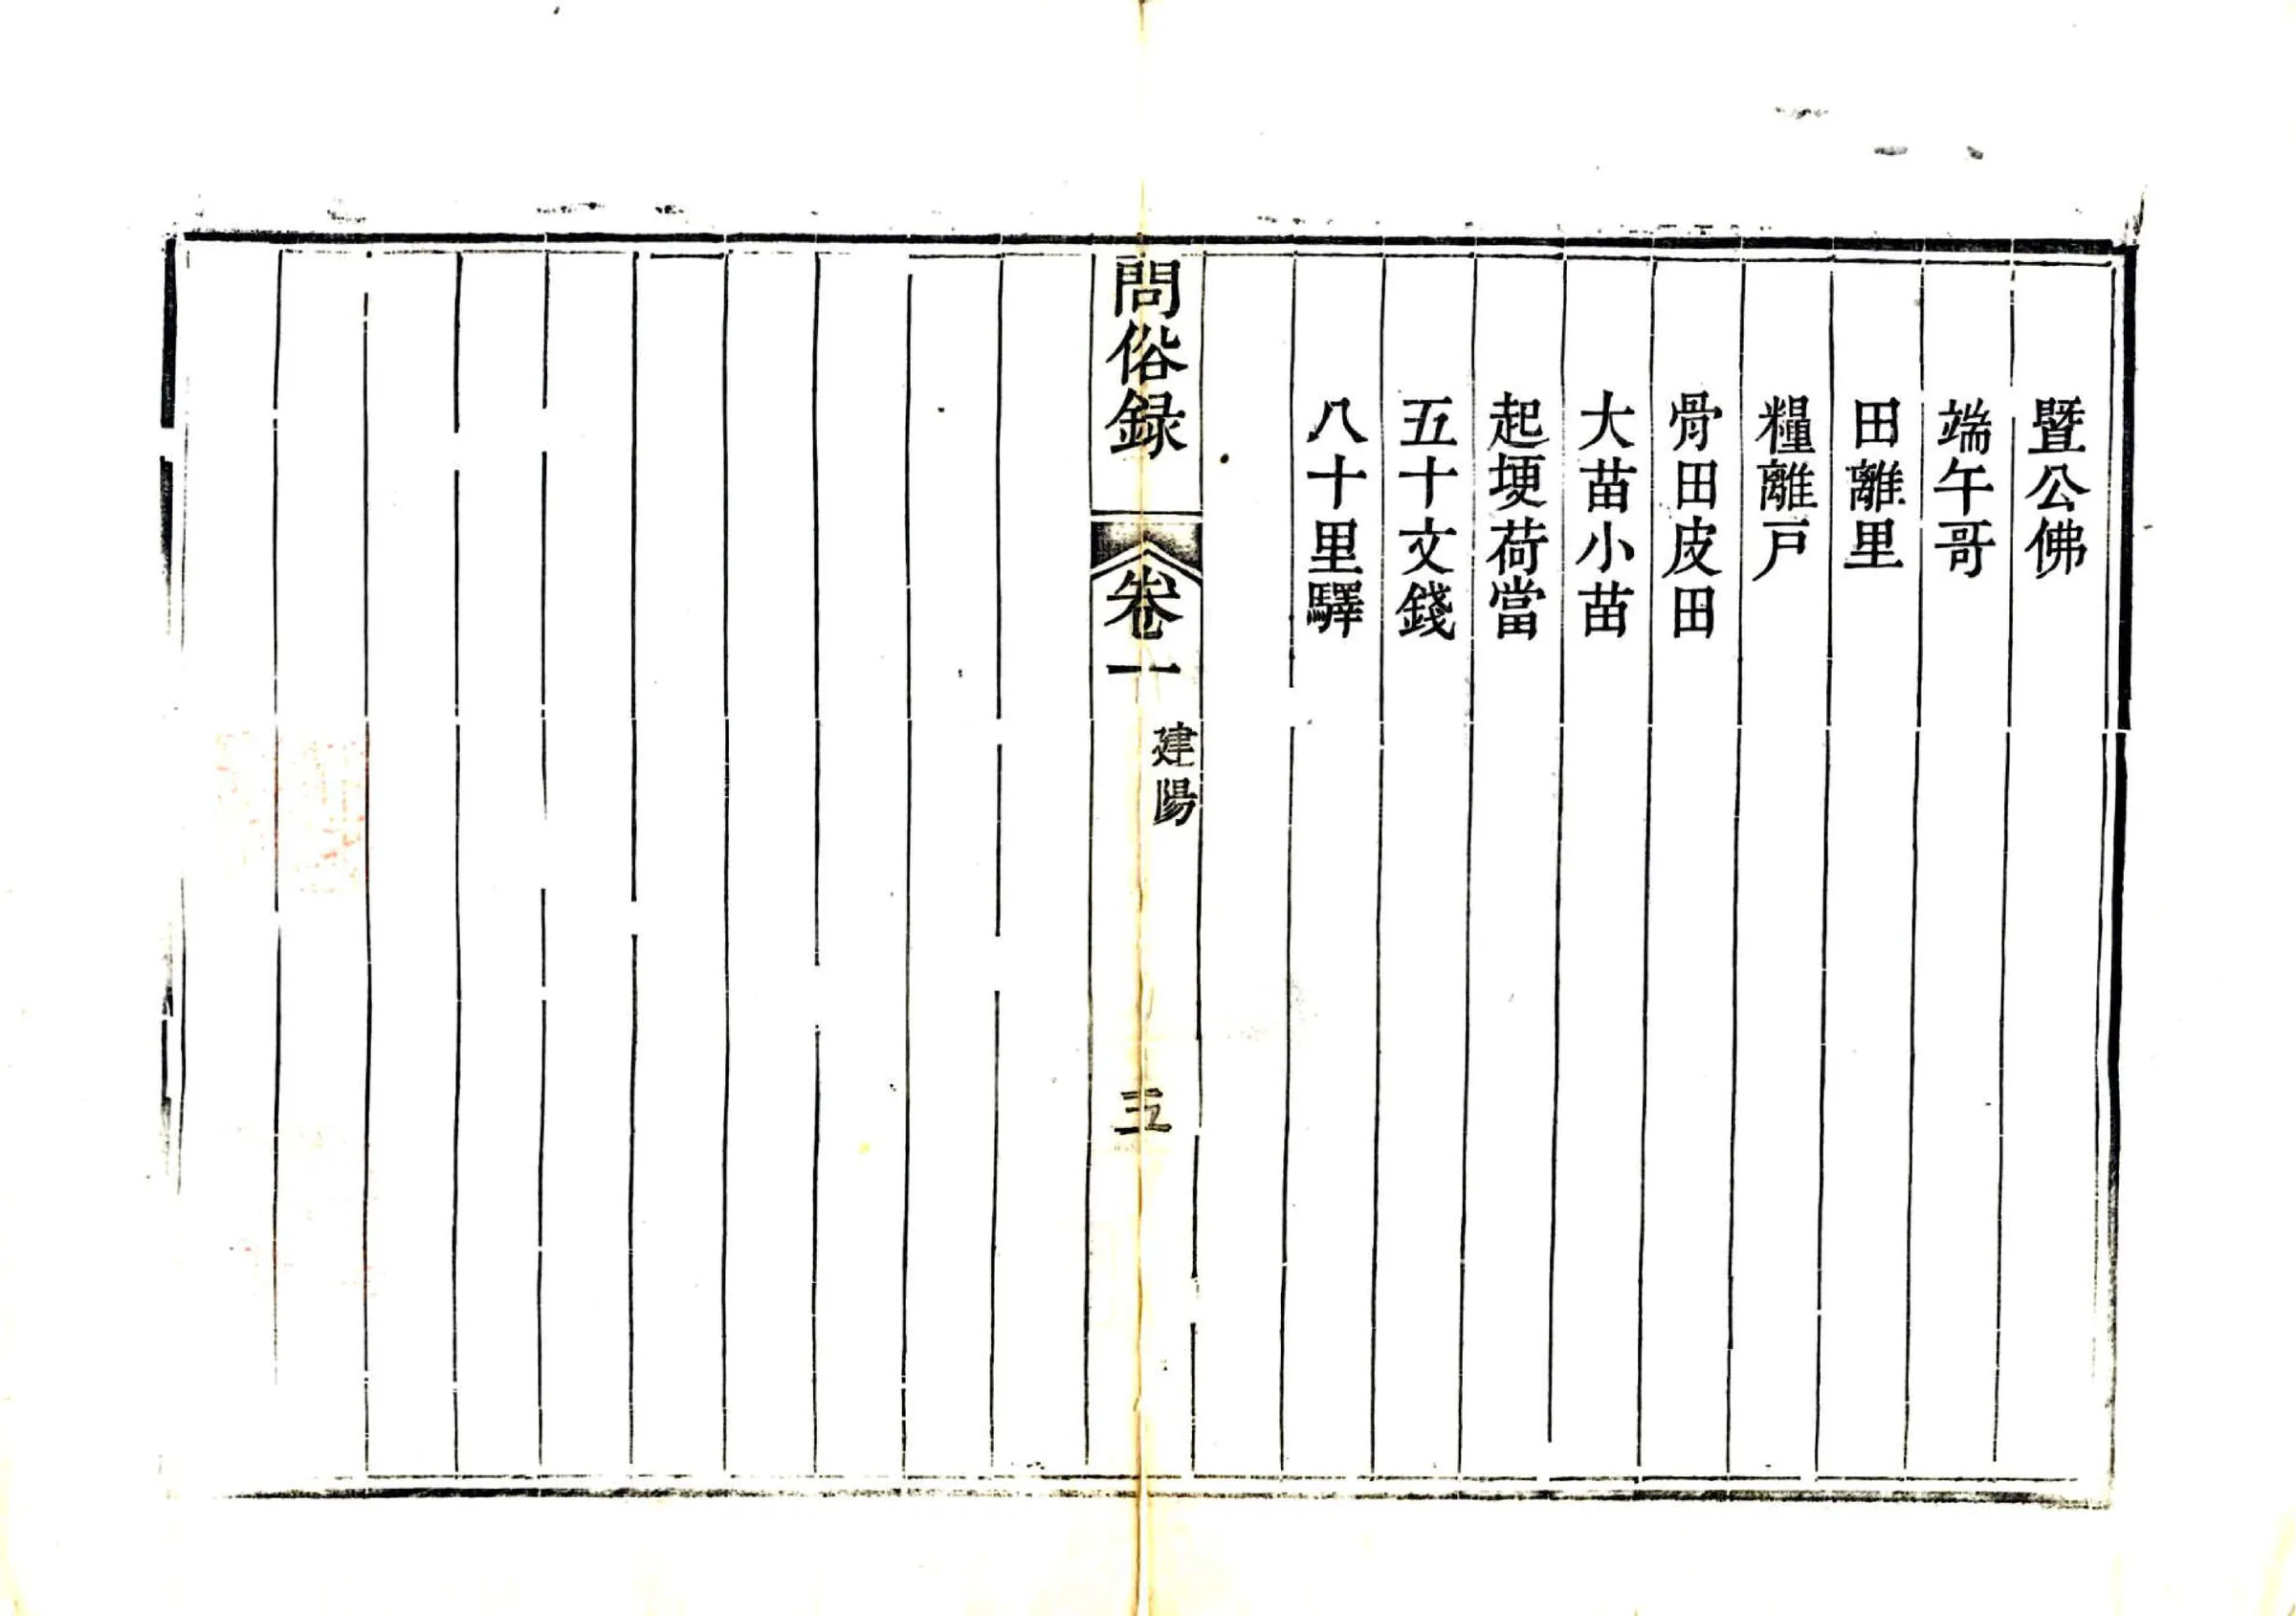 暨公佛
端午哥
田離里
糧離戸
骨田皮田
大苗小苗
起埂荷當
五十文錢
八十里驛
問俗録
卷一
建陽